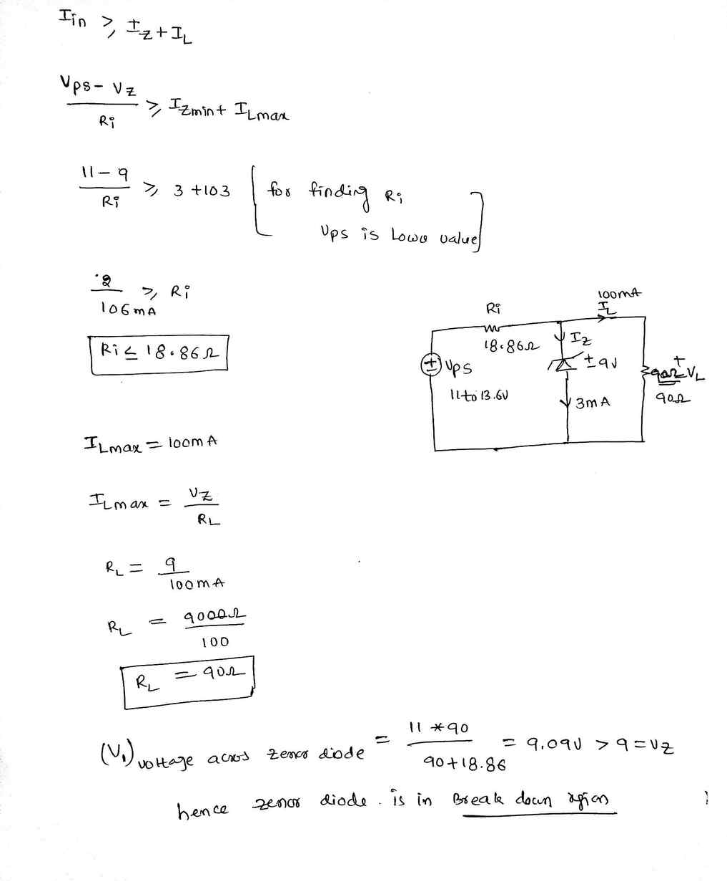 Iin ⩾ Iz + IL
Vps - Vz / Ri ⩾ Izmin + ILmax
11 - 9 / Ri ⩾ 3 + 103 [ for finding Ri
Vps is Lowe value ]
2 / 106 mA ⩾ Ri
Ri ≤ 18.86 Ω
Ri
18.86Ω
Vps
11 to 13.6V
Iz
9V
3mA
100mA
IL
+
VL
90Ω
ILmax = 100mA
ILmax = Vz / RL
RL = 9 / 100mA
RL = 9000Ω / 100
RL = 90Ω
(V1) voltage across zener diode = 11 * 90 / 90 + 18.86 = 9.09V > 9 = Vz
hence zener diode. is in Break down region